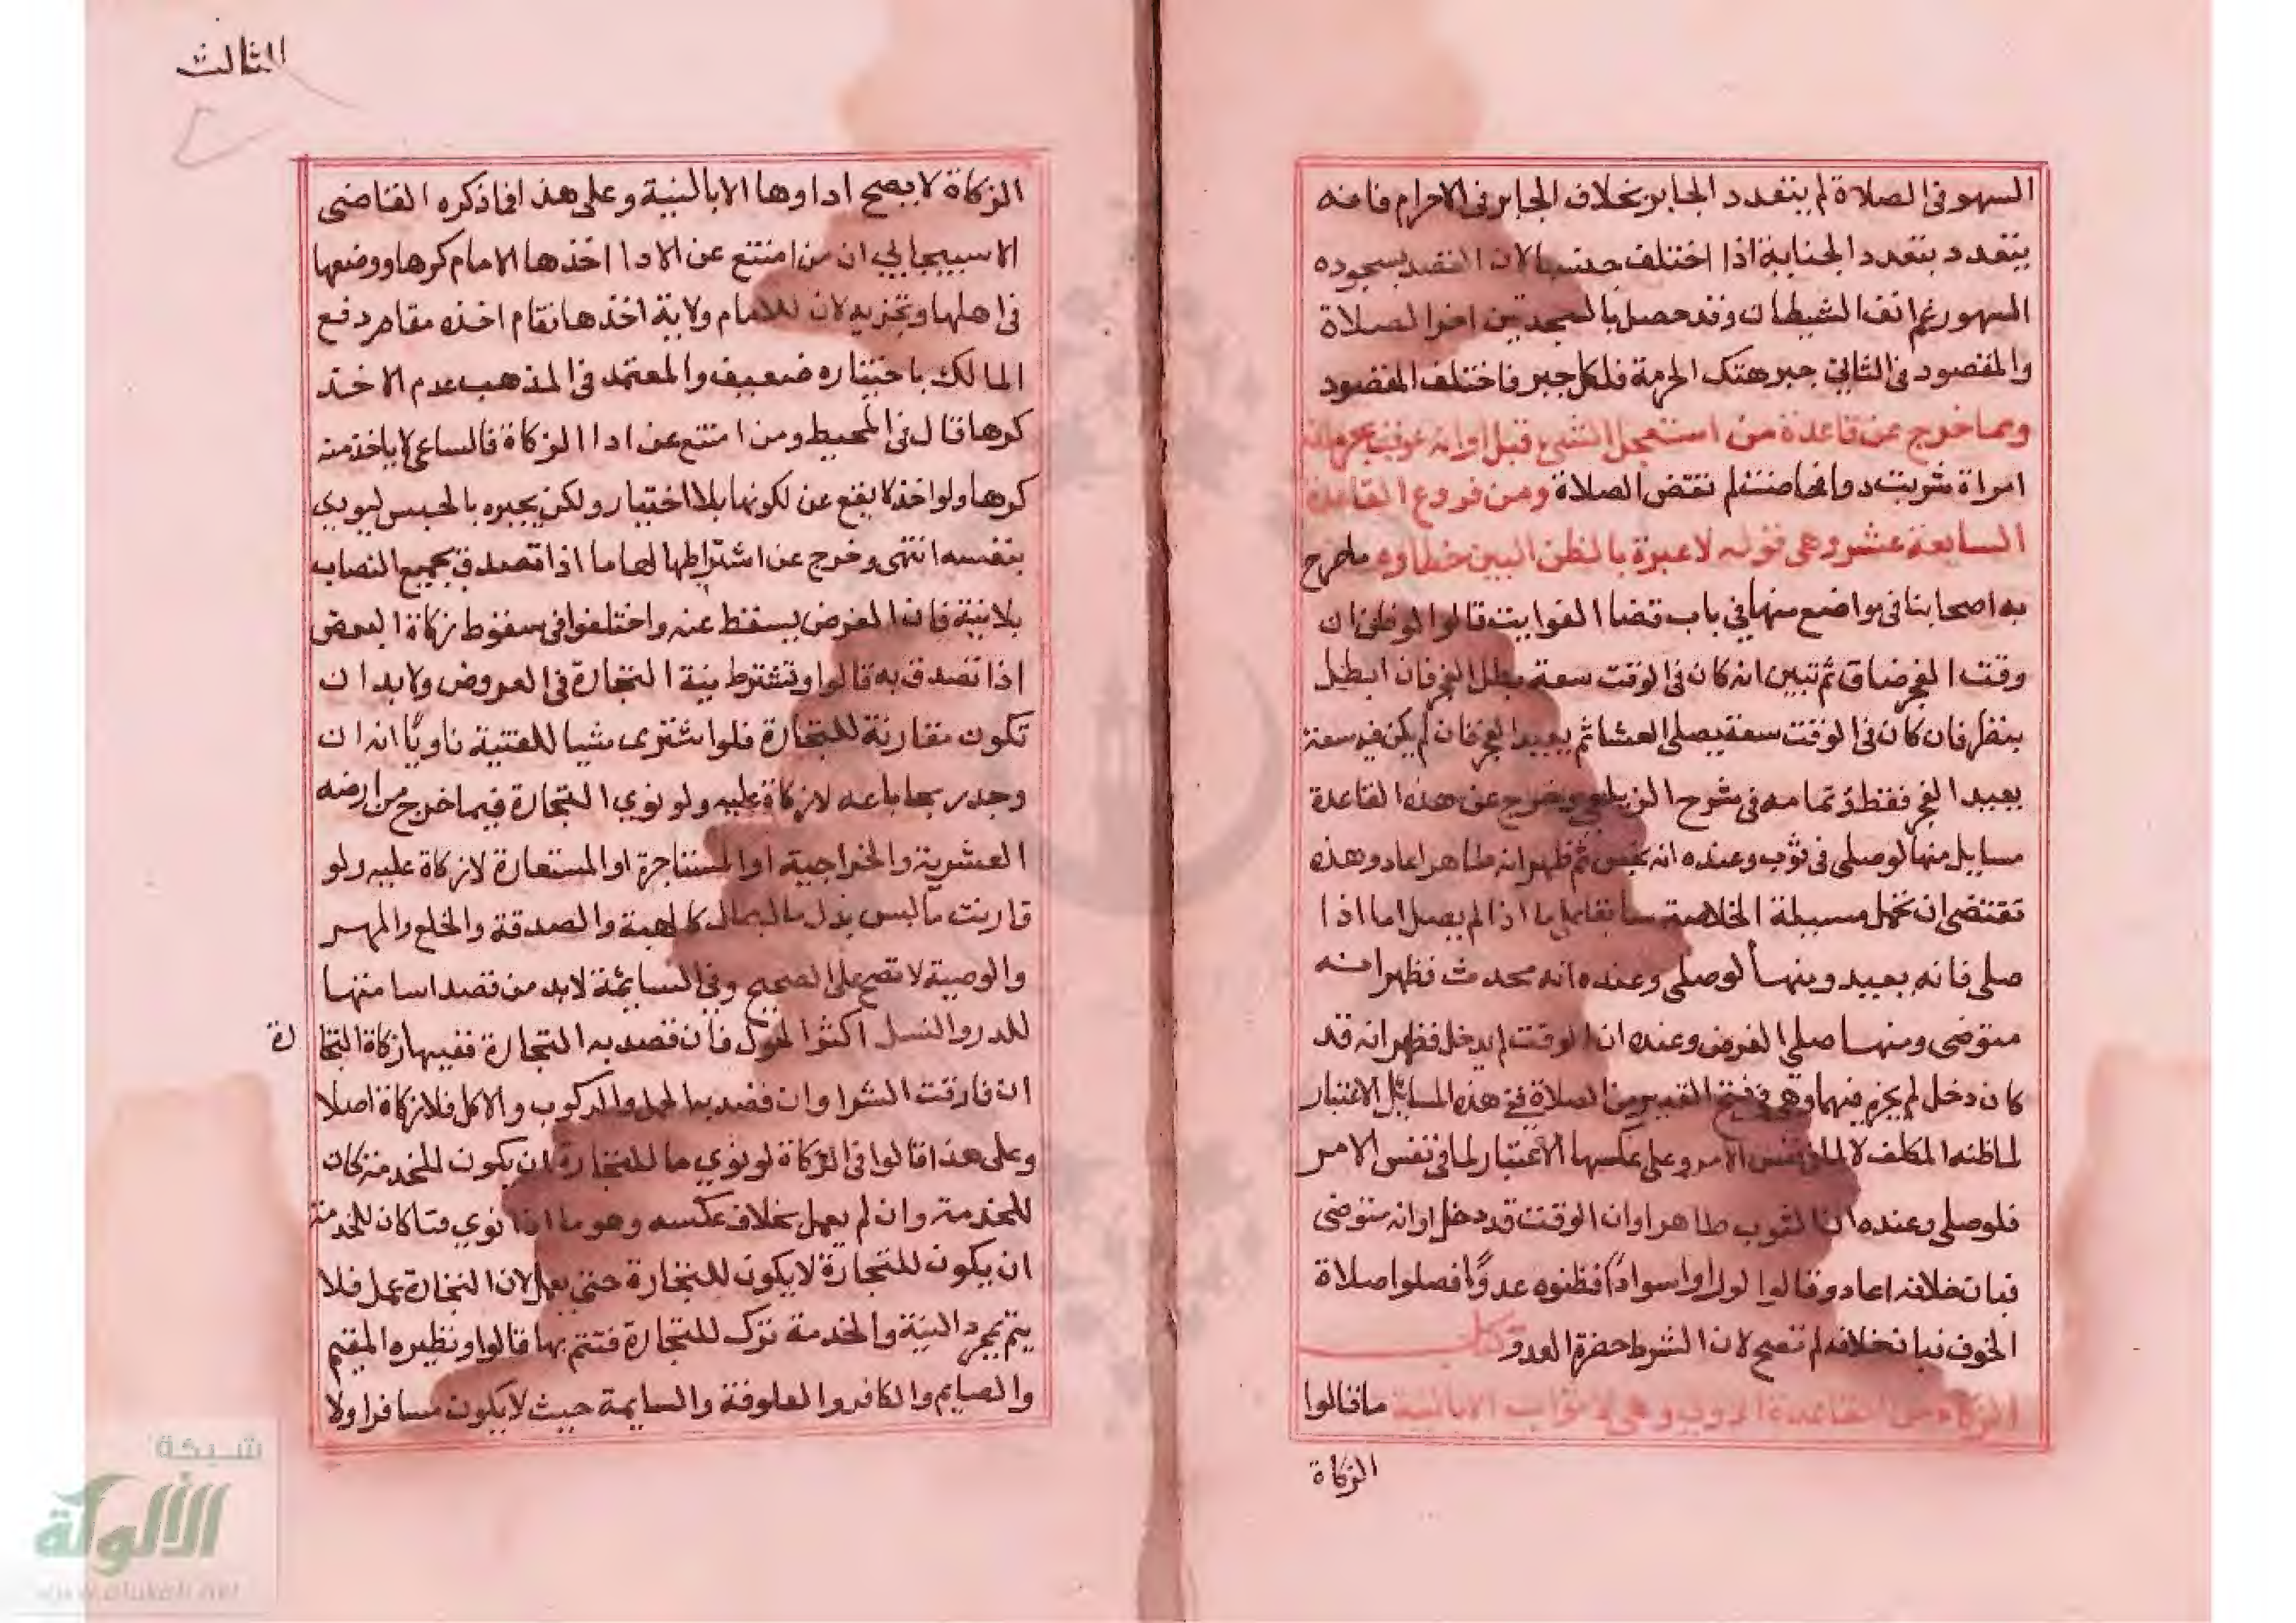 السهو فى الصلاة لم يتعدد الجابر بخلاف الجابر فى الاحرام فانه
يتعدد بتعدد الجناية اذا اختلف جنسها لان المقصد بسجوده
السهو رغم انف الشيطان وقد حصل بالسجدتين اخر الصلاة
والمقصود فى الثاني جبر هتك الحرمة فلكل جبر فاختلف المقصود
ومما خرج عن قاعدة من استعجل الشئ قبل اوانه عوقب بحرمانه
امراة شربت دوا فحاضت لم تقض الصلاة ومن فروع القاعدة
السابعة عشر وهى قوله لا عبرة بالظن البين خطاوه ماصرح
به اصحابنا فى مواضع منها في باب قضا الفوايت قالوا لو ظن ان
وقت الفجر ضاق ثم تبين انه كان فى الوقت سعة بطل الفجر فان ابطل
ينظر فان كان فى الوقت سعة يصلى العشا ثم يعيد الفجر فان لم يكن فيه سعة
يعيد الفجر فقط وتمامه فى شرح الزيلعي وخرج عن هذه القاعدة
مسايل منها لو صلى فى ثوب وعنده انه نجس ثم ظهر انه طاهر اعاد وهذه
تقتضى ان تحمل مسيلة الخلاصة سابقا على ما اذا لم يصل اما اذا
صلى فانه يعيد ومنها لو صلى وعنده انه محدث فظهر انه
متوضى ومنها صلى الفرض وعنده ان الوقت لم يدخل فظهر انه قد
كان دخل لم يجزه فيهما وهي في فتح القدير من الصلاة ففي هذه المسائل الاعتبار
لما ظنه المكلف لا لما فى نفس الامر وعلى عكسها الاعتبار لما فى نفس الامر
فلو صلى وعنده ان الثوب طاهر او ان الوقت قد دخل او انه متوضى
فبان خلافه اعاد وقالوا لو راوا سوادًا فظنوه عدوًا فصلوا صلاة
الخوف فبان خلافه لم تصح لان الشرط حضرة العدو كتاب
الزكاة من القاعدة الاولى وهى لا ثواب الا بالنية ماقالوا
الزكاة
الثالث
الزكاة لا يصح اداوها الا بالنية وعلى هذا فما ذكره القاضى
الاسبيجابي ان من امتنع عن الادا اخذها الامام كرها ووضعها
فى اهلها وتجزيه لان للامام ولاية اخذها فقام اخذه مقام دفع
المالك باختياره ضعيف والمعتمد فى المذهب عدم الاخذ
كرها قال فى المحيط ومن امتنع عن ادا الزكاة فالساعى لا ياخذ منه
كرها ولو اخذ لا يقع عن لكونها بلا اختيار ولكن يجبره بالحبس ليودي
بنفسه انتهى وخرج عن اشتراطها لها ما اذا تصدق بجميع النصاب
بلا نية فان الفرض يسقط عنه واختلفوا فى سقوط زكاة البعض
اذا تصدق به قالوا وتشترط نية التجارة فى العروض ولابد ان
تكون مقارنة للتجارة فلو اشترى شيا للقنية ناويًا انه ان
وجد ربحا باعه لا زكاة عليه ولو نوي التجارة فيما خرج من ارضه
العشرية والخراجية او المستاجرة او المستعارة لا زكاة عليه ولو
قارنت ما ليس بدل مال بمال كالهبة والصدقة والخلع والمهر
والوصية لا تصح على الصحيح وفي السائمة لابد من قصد اسامتها
للدر والنسل اكثر الحول فان قصد به التجارة ففيها زكاة التجا رة
ان قارنت الشرا وان قصد بها الحمل والركوب والاكل فلا زكاة اصلا
وعلى هذا قالوا فى الزكاة لو نوي ما للتجارة ان يكون للخدمة كان
للخدمة وان لم يعمل بخلاف عكسه وهو ما اذا نوي فيما كان للخدمة
ان يكون للتجارة لا يكون للتجارة حتى يعمل لان التجارة عمل فلا
يتم بمجرد النية والخدمة ترك للتجارة فتتم بها قالوا ونظيره المقيم
والصايم والكافر والعلوفة والسايمة حيث لا يكون مسافرا ولا
شبكة
الألوكة
www.alukah.net